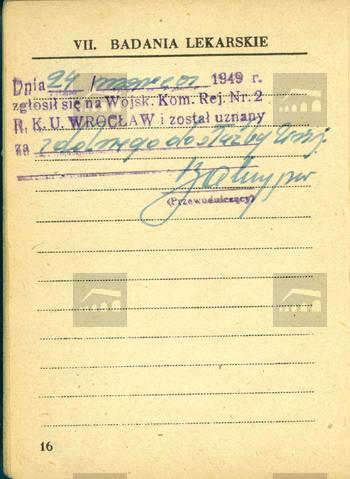 VII. BADANIA LEKARSKIE
Dnia 24 marca 1949 r.
zgłosił się na Wojsk. Kom. Rej. Nr. 2
R. K. U. WROCŁAW i został uznany
za zdolnego do służby
(Przewodniczący)
16